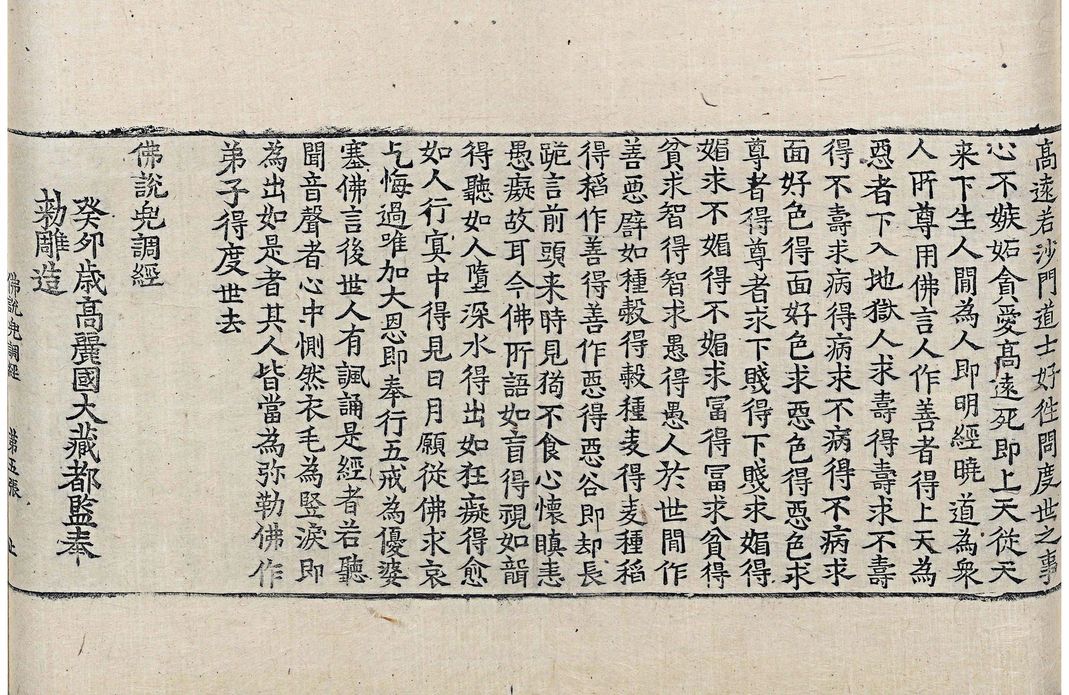 高遠若沙門道士好徃問度世之事
心不嫉妬貪愛高遠死即上天從天
来下生人閒為人即明經曉道為衆
人所尊用佛言人作善者得上天為
惡者下入地獄人求壽得壽求不壽
得不壽求病得病求不病得不病求
面好色得面好色求惡色得惡色求
尊者得尊者求下賤得下賤求媚得
媚求不媚得不媚求冨得冨求貧得
貧求智得智求愚得愚人於世間作
善惡譬如種穀得穀種麦得麦種稻
得稻作善得善作惡得惡谷即却長
跪言前頭来時見猗不食心懷瞋恚
愚癡故耳今佛所語如盲得視如聾
得聽如人墮深水得出如狂癡得愈
如人行冥中得見日月願從佛求哀
乞悔過唯加大恩即奉行五戒為優婆
塞佛言後世人有諷誦是經者若聽
聞音聲者心中惻然衣毛為竪淚即
為出如是者其人皆當為弥勒佛作
弟子得度世去
佛說兜調經
癸卯歳高麗國大藏都監奉
勑雕造
佛說兜調經 第五張 止